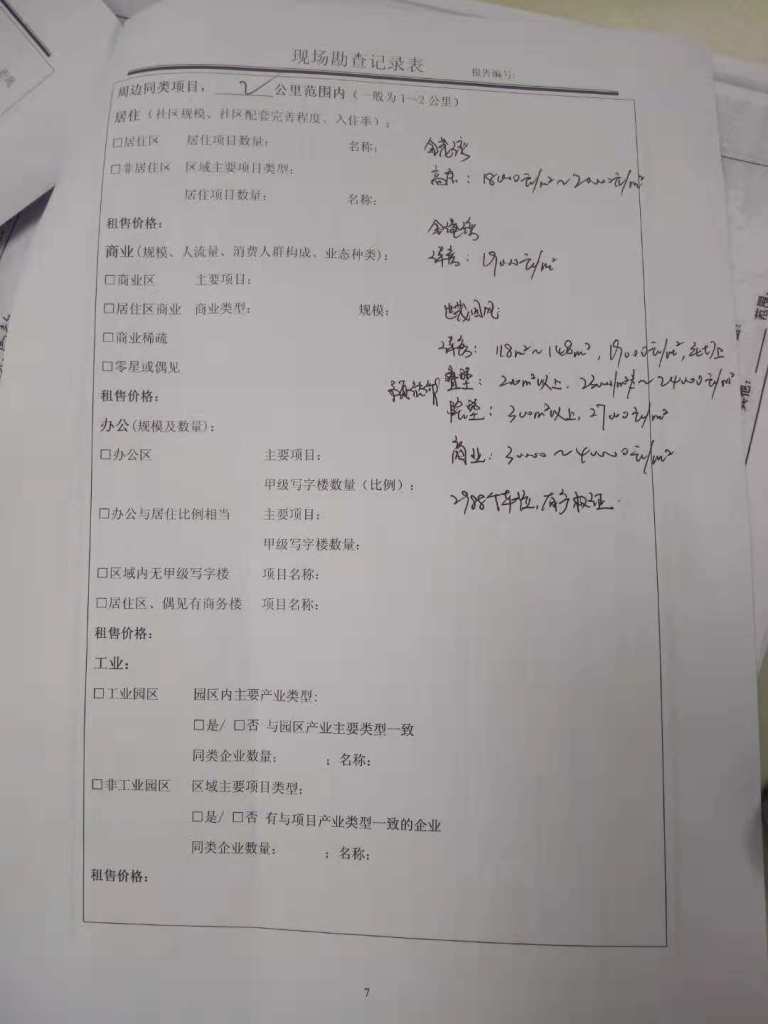 现场勘查记录表
报告编号：
周边同类项目， 2 公里范围内（一般为1—2公里）
居住（社区规模、社区配套完善程度、入住率）：
□居住区 居住项目数量： 名称：
□非居住区 区域主要项目类型：
高层：18000元/m²～20000元/m²
居住项目数量： 名称：
租售价格：
商业(规模、人流量、消费人群构成、业态种类)：
洋房：19000元/m²
□商业区 主要项目：
□居住区商业 商业类型： 规模：
□商业稀疏
洋房：118m²～148m²，19000元/m²，
□零星或偶见
叠墅：200m²以上，23000元/m²～24000元/m²
租售价格：
300m²以上，27000元/m²
办公(规模及数量)：
□办公区 主要项目：
商业：30000～40000元/m²
甲级写字楼数量（比例）：
2988个车位，有产权证.
□办公与居住比例相当 主要项目：
甲级写字楼数量：
□区域内无甲级写字楼 项目名称：
□居住区、偶见有商务楼 项目名称：
租售价格：
工业：
□工业园区 园区内主要产业类型:
□是/ □否 与园区产业主要类型一致
同类企业数量： ；名称：
□非工业园区 区域主要项目类型：
□是/ □否 有与项目产业类型一致的企业
同类企业数量： ；名称：
租售价格：
7